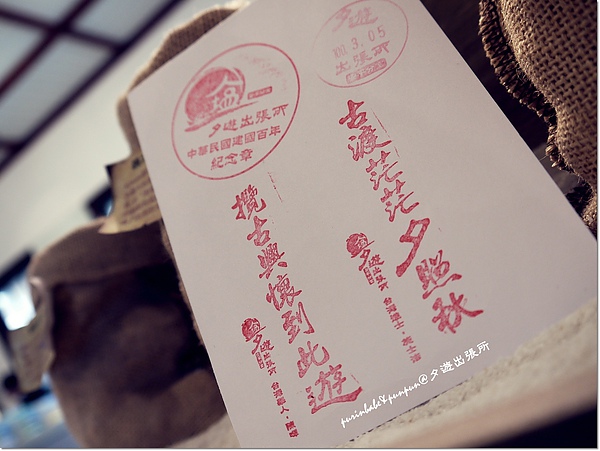 夕遊出張所
中華民國建國百年
紀念章
夕遊
3.05
出張所
古渡茫茫夕照秋
夕遊出張所
攬古興懷到此遊
夕遊出張所
purinbabe&punpun@夕遊出張所